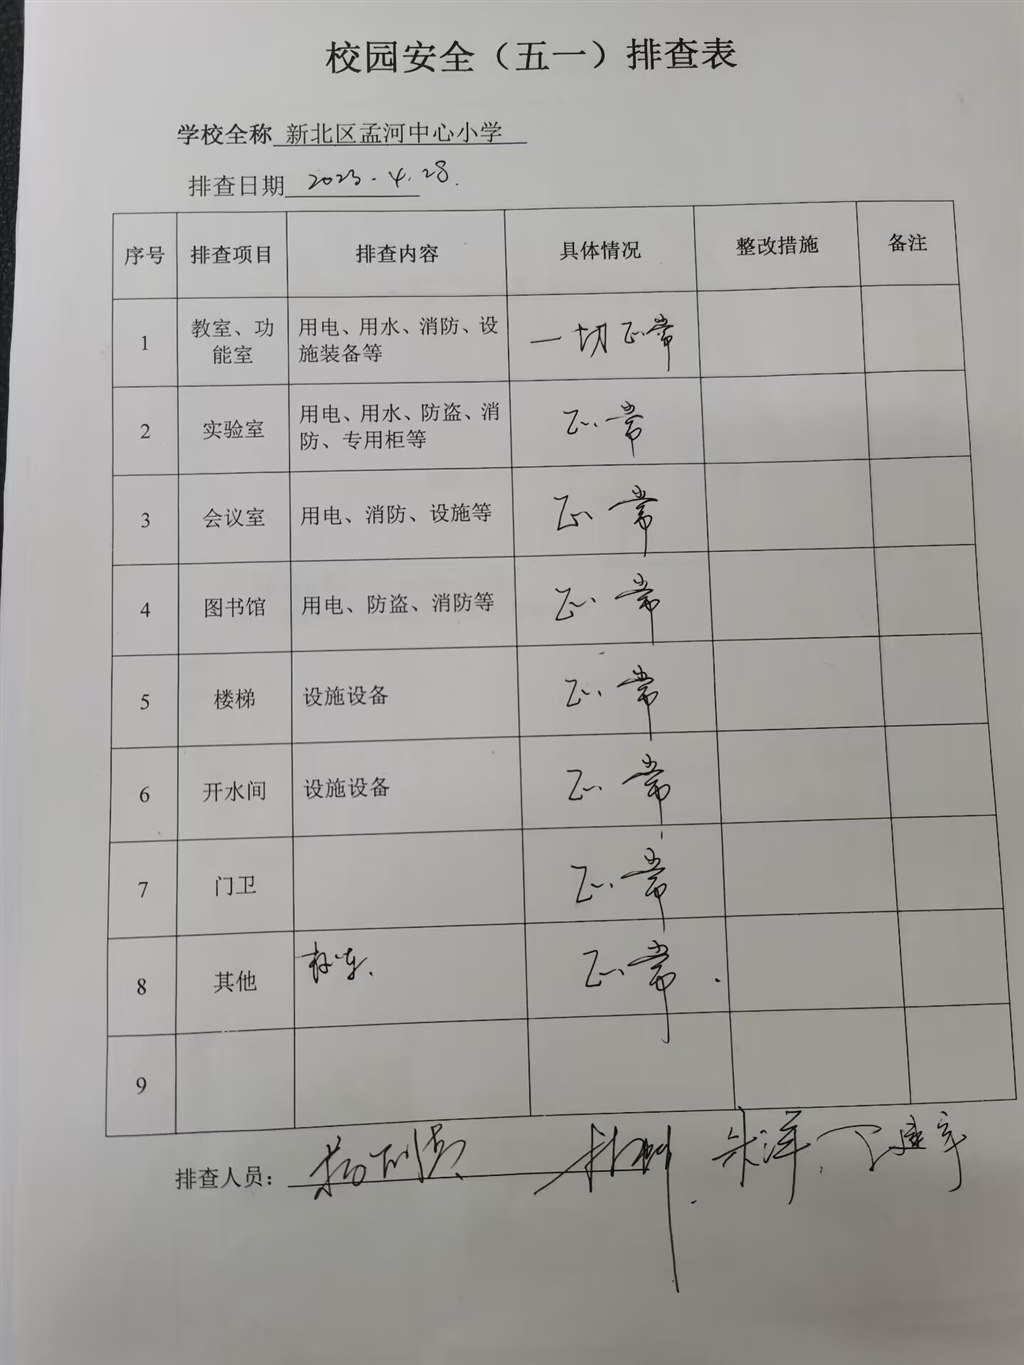 校园安全（五一）排查表
学校全称 新北区孟河中心小学
排查日期 2023.4.28.
序号 排查项目 排查内容 具体情况 整改措施 备注
1 教室、功能室 用电、用水、消防、设施装备等 一切正常
2 实验室 用电、用水、防盗、消防、专用柜等 正常
3 会议室 用电、消防、设施等 正常
4 图书馆 用电、防盗、消防等 正常
5 楼梯 设施设备 正常
6 开水间 设施设备 正常
7 门卫 正常
8 其他 校车. 正常.
9
排查人员： 朱洋